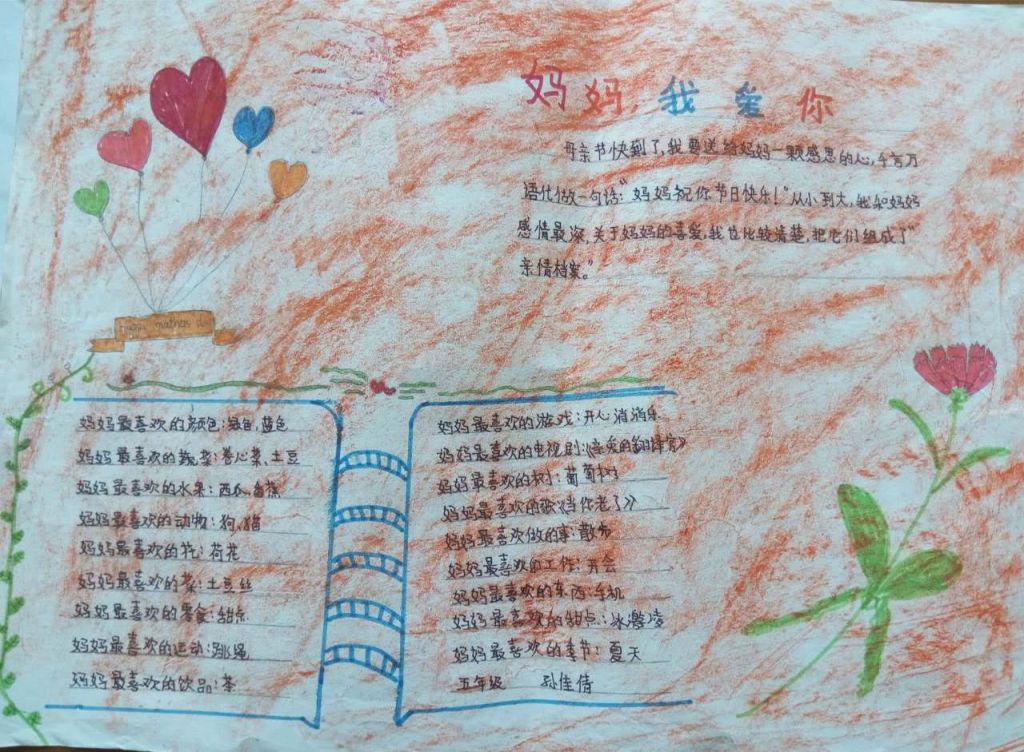 妈妈,我爱你
母亲节快到了,我要送给妈妈一颗感恩的心,千言万
语代做一句话:“妈妈祝你节日快乐!”从小到大,我和妈妈
感情最深,关于妈妈的喜爱,我也比较清楚,把它们组成了“
亲情档案。”
妈妈最喜欢的颜色:绿色,蓝色
妈妈最喜欢的蔬菜:卷心菜、土豆
妈妈最喜欢的水果:西瓜,香蕉
妈妈最喜欢的动物:狗,猫
妈妈最喜欢的花:荷花
妈妈最喜欢的菜:土豆丝
妈妈最喜欢的零食:甜点
妈妈最喜欢的运动:跳绳
妈妈最喜欢的饮品:茶
妈妈最喜欢的游戏:开心消消乐
妈妈最喜欢的电视剧:《亲爱的翻译官》
妈妈最喜欢的树:葡萄树
妈妈最喜欢的歌《当你老了》
妈妈最喜欢做的事:散步
妈妈最喜欢的工作:开会
妈妈最喜欢的东西:手机
妈妈最喜欢的甜点:冰激凌
妈妈最喜欢的季节:夏天
五年级 孙佳倩